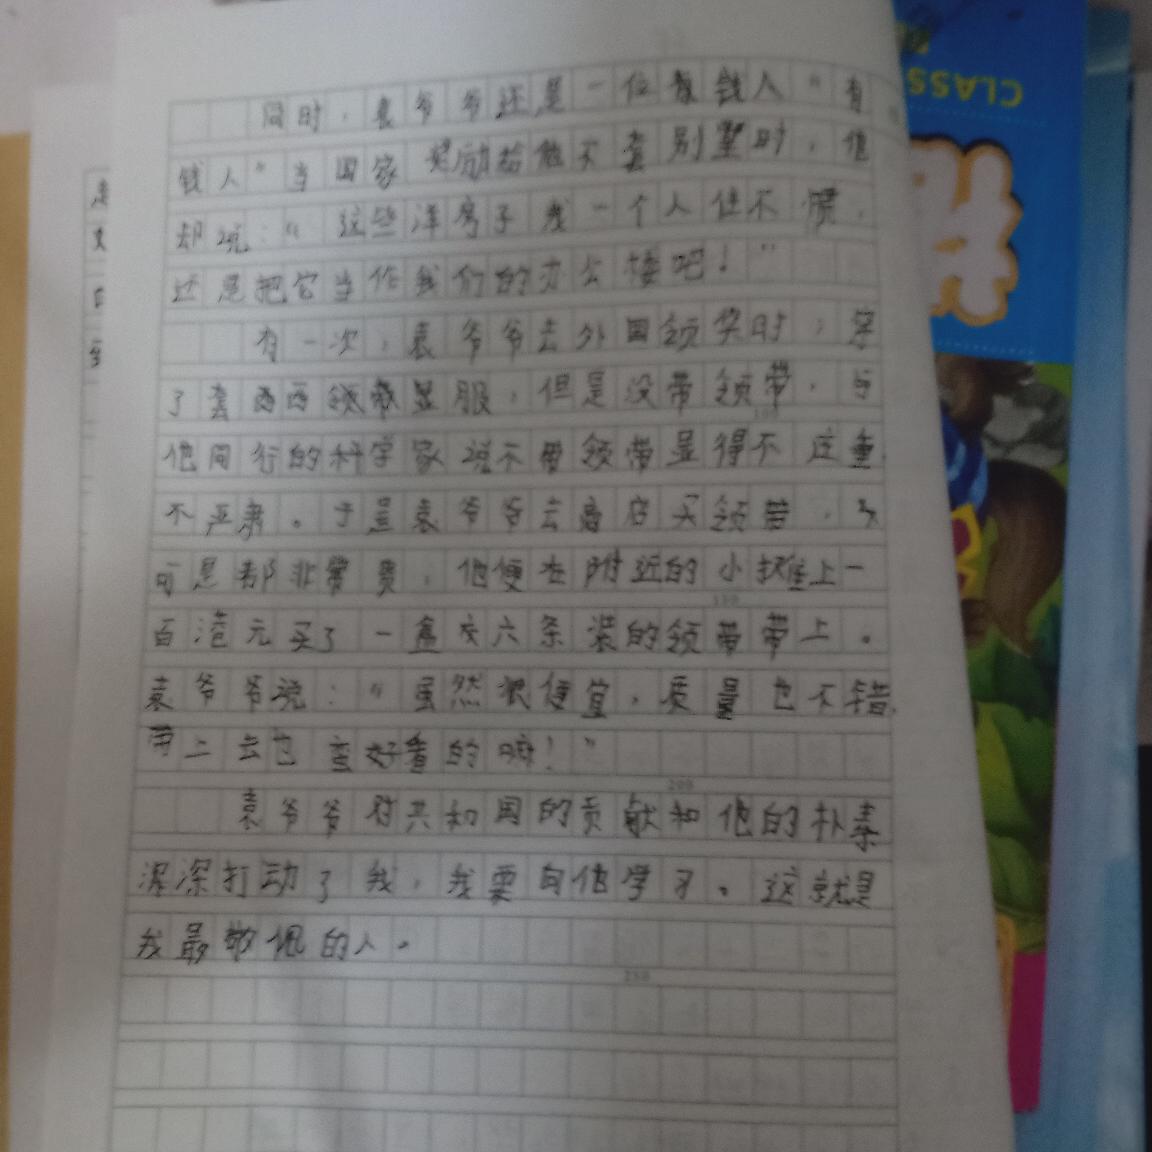 同时，袁爷爷还是一位有钱人“有
钱人”当国家奖励给他不套别墅时，他
却说：“这些洋房子我一个人住不惯，
还是把它当作我们的办公楼吧！”
有一次，袁爷爷去外国领奖时，穿
了套西西领带显服，但是没带领带，与
他同行的科学家说不带领带显得不庄重，
不严肃。于是袁爷爷去商店买领带，
可是都非常贵，他便在附近的小摊上一
百港元买了一盒六条装的领带带上。
袁爷爷说：“虽然很便宜，质量也不错，
带上去也蛮好看的嘛！”
袁爷爷对共和国的贡献和他的朴素
深深打动了我，我要向他学习。这就是
我最敬佩的人。
100
150
200
250
CLASS